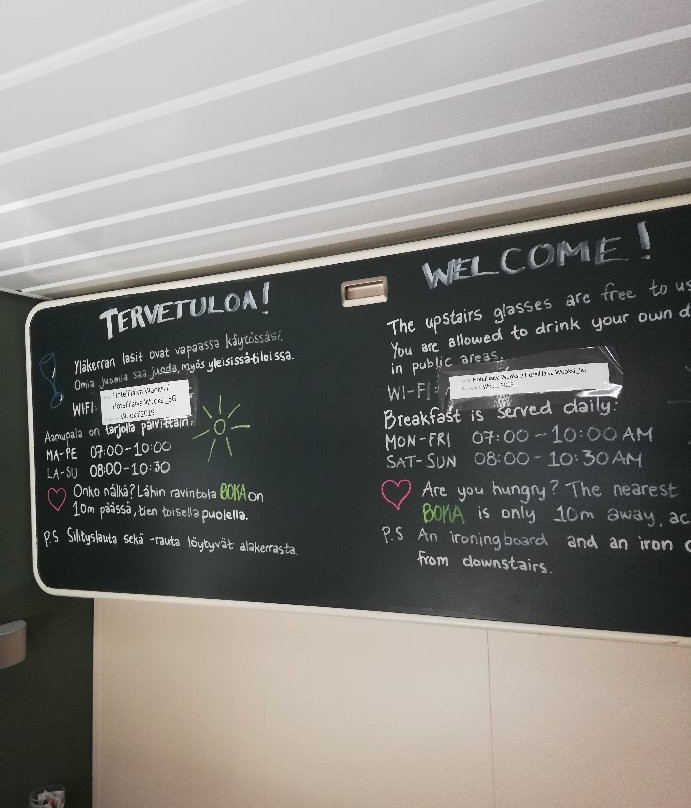 TERVETULOA!
Yläkerran lasit ovat vapaassa käytössäsi.
Omia juomia saa juoda, myös yleisissä tiloissa.
WIFI:
Aamupala on tarjolla päivittäin:
MA-PE 07:00-10:00
LA-SU 08:00-10:30
Onko nälkä? Lähin ravintola BOKA on
10m päässä, tien toisella puolella.
P.S Silityslauta sekä -rauta löytyvät alakerrasta.
WELCOME!
The upstairs glasses are free to us
You are allowed to drink your own d
in public areas.
WI-FI:
Breakfast is served daily:
MON-FRI 07:00-10:00 AM
SAT-SUN 08:00-10:30 AM
Are you hungry? The nearest
BOKA is only 10m away, ac
P.S An ironingboard and an iron c
from downstairs.